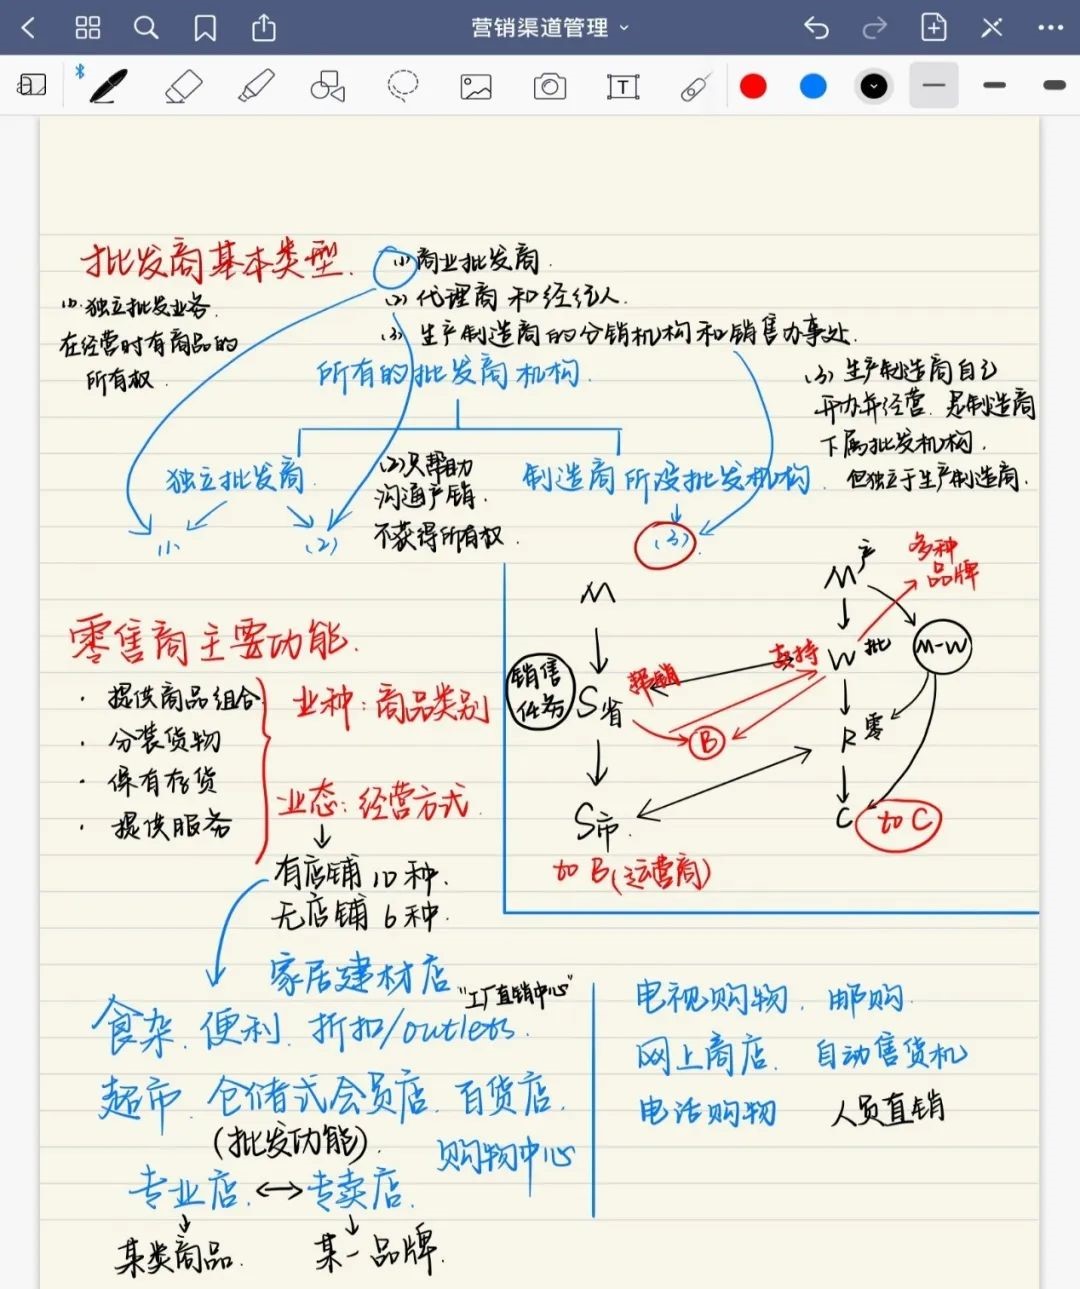 营销渠道管理
批发商基本类型.
(1) 商业批发商.
(2) 代理商和经纪人.
(3) 生产制造商的分销机构和销售办事处.
(1) 独立批发业务.
在经营时有商品的
所有权.
所有的批发商机构.
(3) 生产制造商自己
开办并经营. 是制造商
下属批发机构.
但独立于生产制造商.
独立批发商.
(2) 只帮助
沟通产销.
不获得所有权.
制造商所设批发机构.
(1)
(2)
(3).
零售商主要功能.
· 提供商品组合
· 分装货物
· 保有存货
· 提供服务
业种: 商品类别
业态: 经营方式.
有店铺 10 种.
无店铺 6 种.
M
销售
任务
S省
S市.
to B (运营商)
B
M 产
多种
品牌
W 批
M-W
R 零
C
to C
家居建材店
"工厂直销中心"
食杂. 便利. 折扣/outlets.
超市. 仓储式会员店. 百货店.
(批发功能).
购物中心
专业店. ↔ 专卖店.
某类商品.
某一品牌.
电视购物. 邮购.
网上商店. 自动售货机
电话购物 人员直销